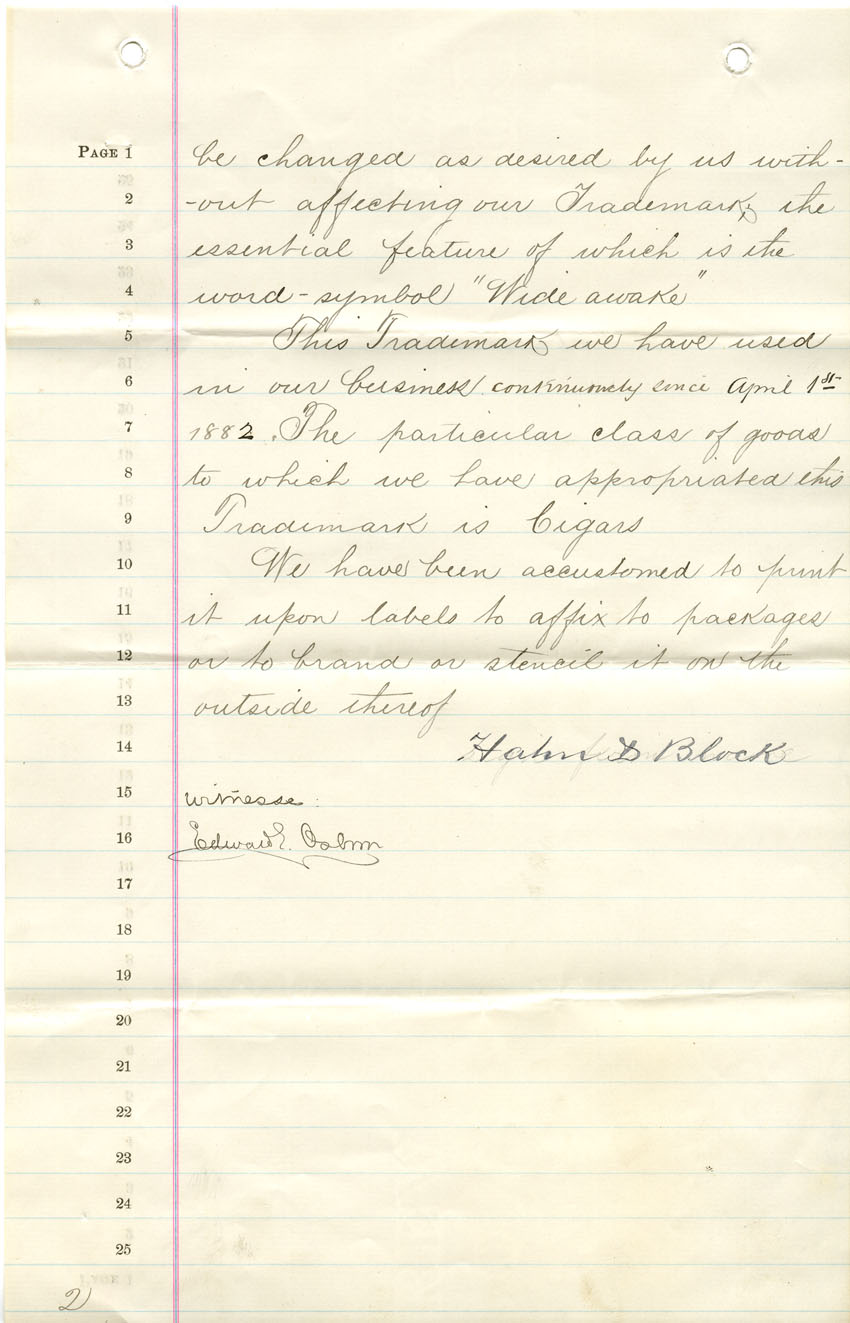 PAGE 1 be changed as desired by us with-
2 -out affecting our Trademark, the
3 essential feature of which is the
4 word-symbol "Wide awake"
5 This Trademark we have used
6 in our business continuously since April 1st
7 1882. The particular class of goods
8 to which we have appropriated this
9 Trademark is Cigars
10 We have been accustomed to print
11 it upon labels to affix to packages
12 or to brand or stencil it on the
13 outside thereof
14 Hahn & Block
15 witnesses:
16 Edward E. Osborn
17
18
19
20
21
22
23
24
25
2